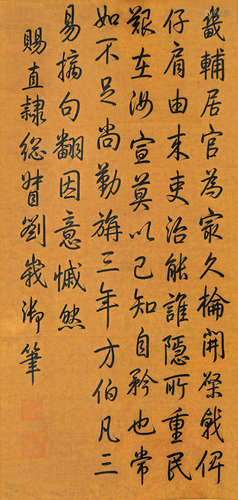 畿輔居官為家久掄開棨戟俾
仔肩由來吏治能誰隱所重民
艱在汝宣莫以己知自矜也常
如不足尚勤旃三年方伯凡三
易摘句翻因意慽然
賜直隸緫督劉峩御筆